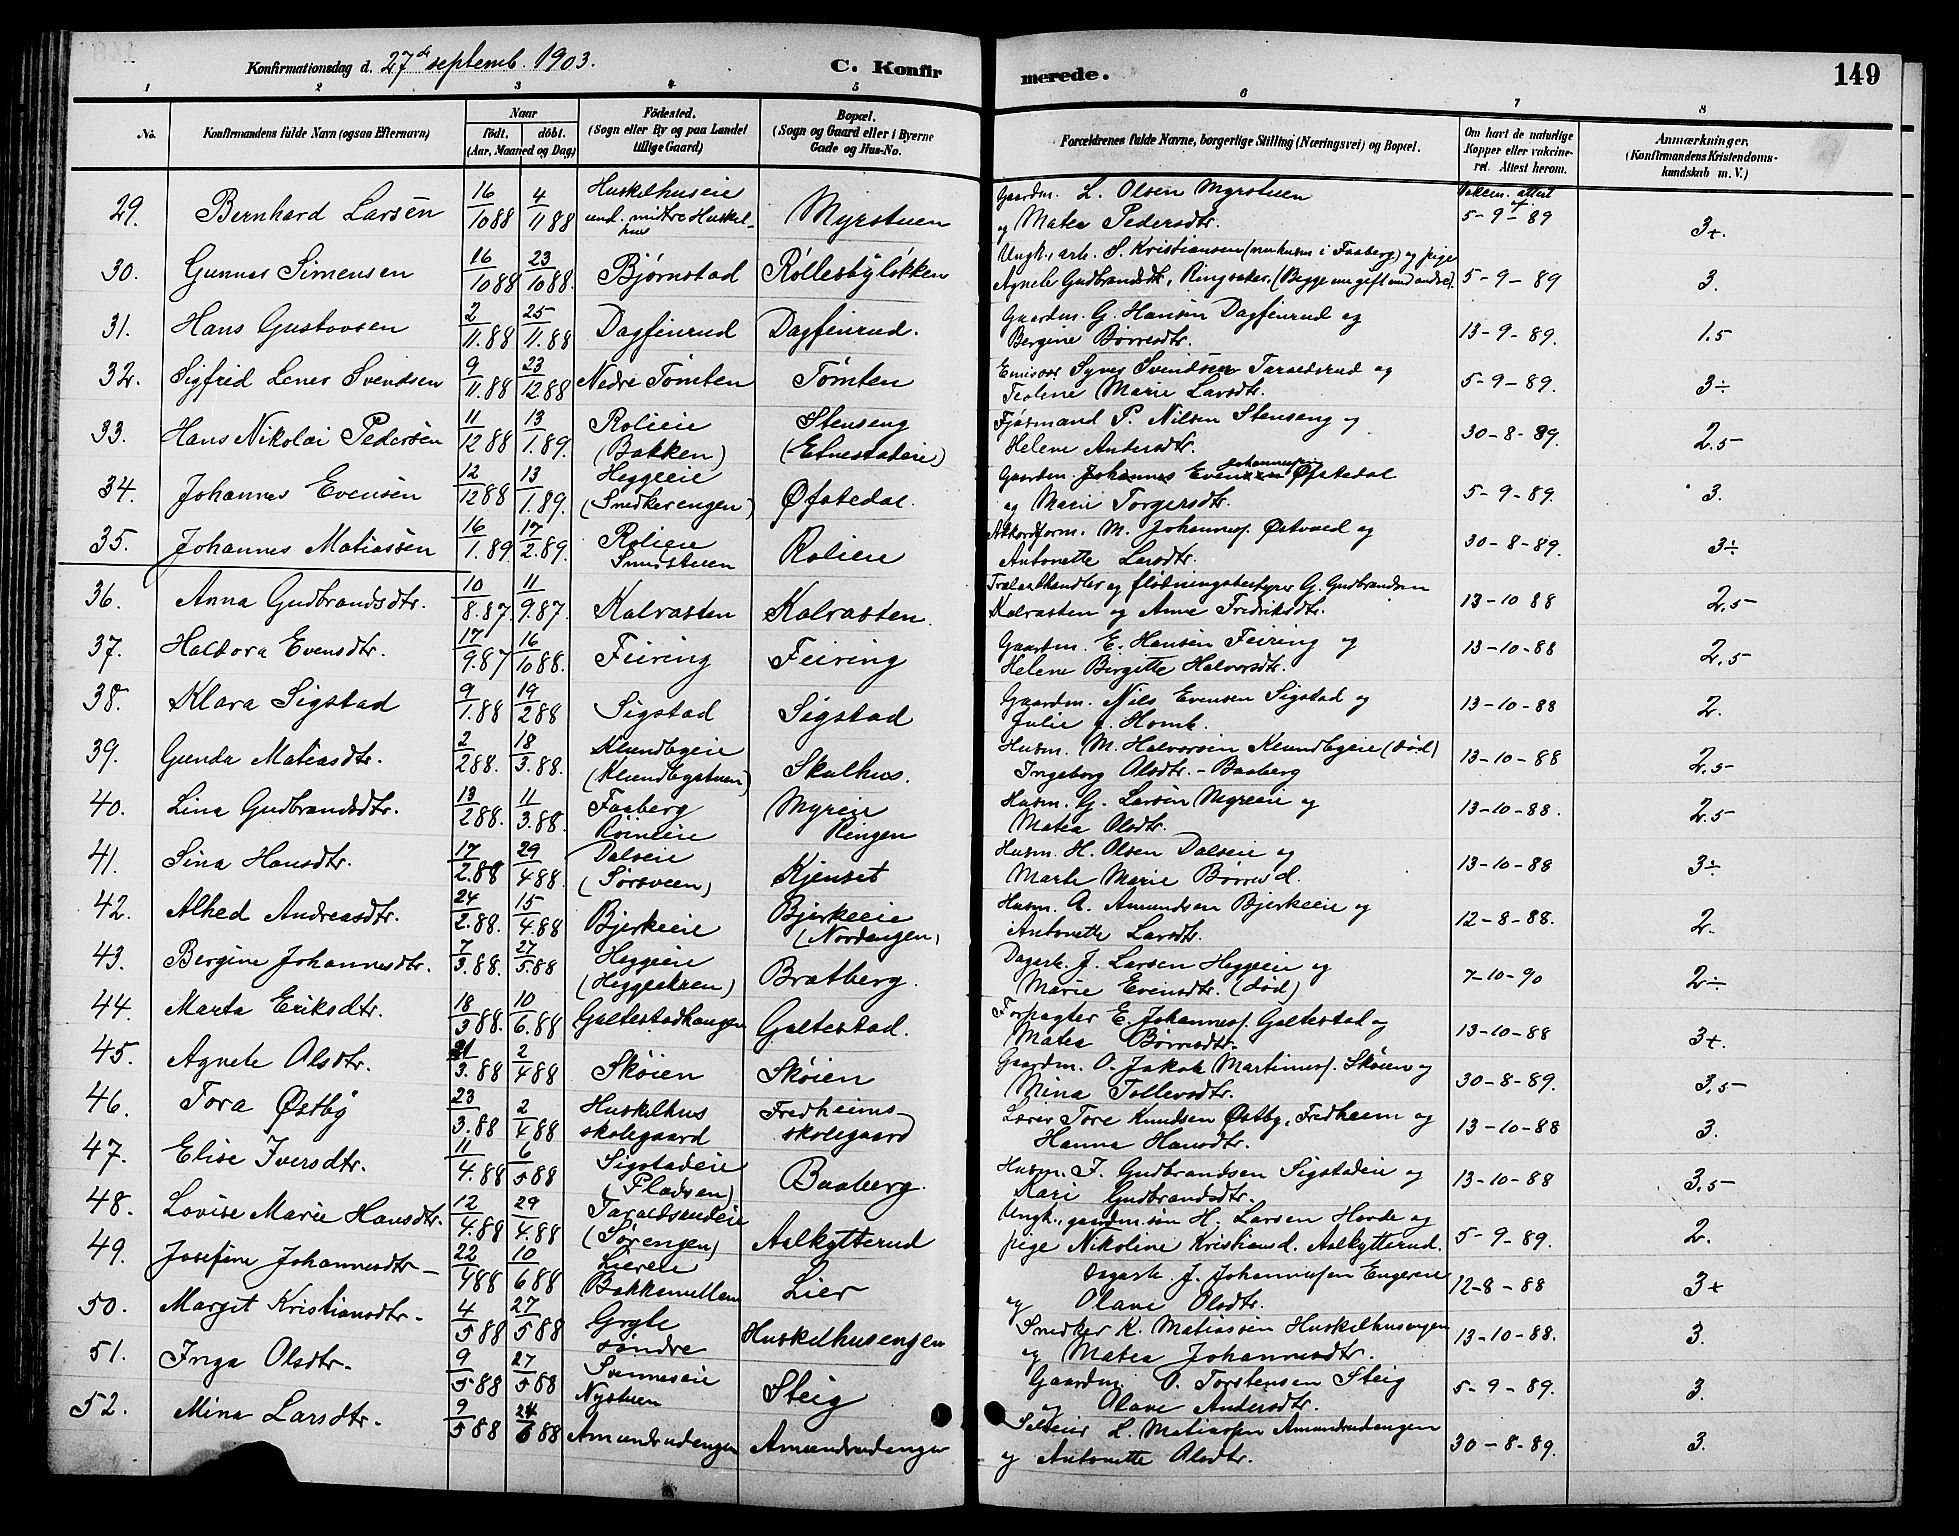 Konfirmationsdag d. 27de septemb. 1903. C. Konfir merede. 149
1 2 3 4 5 6 7 8
No. Konfirmandens fulde Navn (ogsaa Efternavn) Naar født, døbt. (Aar, Maaned og Dag) Fødested. (Sogn eller By og paa Landet tillige Gaard) Bopæl. (Sogn og Gaard eller i Byerne Gade og Hus-No. Forældrenes fulde Navne, borgerlige Stilling (Næringsvei) og Bopæl. Om havt de naturlige Kopper eller vakcineret. Attest herom. Anmærkninger. (Konfirmandens Kristendomskundskab m. V.)
29. Bernhard Larsen 16/10 88 4/11 88 Huskelhuseie und. mitre Huskelhus Myrstuen Gaardm. L. Olsen Myrstuen og Matea Pedersdtr. Vakcin. attest af 5-9-89 3+.
30. Gunnar Simensen 16/10 88 23/10 88. Bjørnstad Røllesbyløkken Ungk., arb. S. Kristiansen (nuhusm i Faaberg) og pige Agnete Gudbrandsdtr, Ringsaker, (Begge nu gift med andre). 5-9-89 3.
31. Hans Gustavsen 2/11.88 25/11.88 Dagfinrud Dagfinrud. Gaardm. G. Hansen Dagfinrud og Bergine Børresdtr. 13-9-89. 1.5
32. Sigfred Lenes Svendsen 9/11.88 23/12 88 Nedre Tømten Tømten Emisær Syver Svendsen Taraldsrud og Teoline Marie Larsdtr. 5-9-89. 3÷
33. Hans Nikolai Pedersen 11/12 88 13/1.89. Rolieie (Bakken) Stenseng (Etnestadeie) Fjøsmand P. Nilsen Stenseng og Helene Andersdtr. 30-8-89. 2.5
34. Johannes Evensen 12/12 88 13/1.89. Heggeie (Snedkerengen) Øfstedal. Gaardm. Johannes Evensen Øfstedal og Marie Torgersdtr. 5-9-89. 3.
35. Johannes Matiassen 16/1.89. 17/2.89. Rolieie Smedstuen Rolien Akkordform. M. Johannesf. Østvold og Antonette Larsdtr. 30-8-89. 3÷
36. Anna Gudbrandsdtr. 10/8.87. 11/9.87. Kalrasten Kalrasten. Trælasthandler og flødningsbestyrer G. Gudbrandsen Kalrasten og Anne Fredriksdtr. 13-10 88 2.5
37. Haldora Evensdtr. 17/9.87 16/10 88. Feiring Feiring Gaardm. E. Hansen Feiring og Helene Birgitte Halvorsdtr. 13-10-88 2.5
38. Klara Sigstad 9/1.88 19/2 88 Sigstad Sigstad Gaardm. Nils Evensen Sigstad og Julie f. Homb. 13-10-88 2.
39. Gunda Matiasdtr. 2/2 88. 18/3.88. Klundbyeie (Klundbystuen) Skalhus. Husm. M. Halvorsen Klundbyeie (død) Ingeborg Olsdtr. - Baaberg 13-10-88 2.5
40. Lina Gudbrandsdtr. 13/2 88. 11/3.88. Faaberg Røineeie Myreie Ringen Husm. G. Larsen Myreeie og Matea Olsdtr. 13-10-88. 2.5
41. Sina Hansdtr. 17/2.88 29/4 88. Dalseie (Sørsveen) Kjenset Husm. H. Olsen Dalseie og Marte Marie Børresd. 13-10-88 3÷
42. Alhed Andreasdtr. 24/2.88. 15/4.88 Bjerkeeie Bjerkeeie (Nordengen) Husm. A. Amundsen Bjerkeeie og Antonette Larsdtr. 12-8-88. 2.
43. Bergine Johannesdtr. 7/3.88. 27/5.88 Heggeeie (Heggeekren) Bratberg. Dagarb. J. Larsen Heggeeie og Marie Evensdtr. (død) 7-10-90 2÷
44. Marta Eriksdtr. 18/3 88. 10/6.88 Galtestadhaugen Galtestad. Forpagter E. Johannesf. Galtestad og Matea Børresdtr. 13-10-88 3+.
45. Agnete Olsdtr. 21/3.88 2/4 88 Skøien Skøien Gaardm. O. Jakob Martinusf. Skøien og Mina Tollevsdtr. 30-8-89. 3.5
46. Tora Østby 23/3.88 2/4 88 Huskelhus skolegaard Fredheims skolegaard Lærer Tore Knudsen Østby, Fredheim og Hanna Hansdtr. 13-10-88 3.
47. Elise Iversdtr. 11/4.88 6/5 88 Sigstadeie (Pladsen) Baaberg. Husm. I. Gudbrandsen Sigstadeie og Kari Gudbrandsdtr. 13-10-88 3.5
48. Lovise Marie Hansdtr. 12/4.88 29/4.88 Taraldsrudeie (Sørengen) Aalkytterud Ungk., gaardm.søn H. Larsen Hovde og pige Nikoline Kristiansd. Aalkytterud. 5-9-89. 2.
49. Josefine Johannesdtr 22/4 88 10/6 88 Liereie Bakkemellem Lier Dagarb. J. Johannesen Engereie og Olave Olsdtr. 12-8-88 3+
50. Margit Kristiansdtr. 4/5 88 27/5 88 Gryte søndre Huskelhusengen Snedker K. Matiassen Huskelhusengen og Matea Johannesdtr. 13-10-88. 3.
51. Inga Olsdtr. 9/5 88 27/5 88 Svenneseie Nystuen Steig Gaardm. O. Torstensen Steig og Olave Andersdtr. 5-9-89. 3.
52. Mina Larsdtr. 9/5 88 24/6 88 Amundrudengen Amundrudengen Selveier L. Matiassen Amundrudengen og Antonette Olsdtr. 30-8-89. 3.